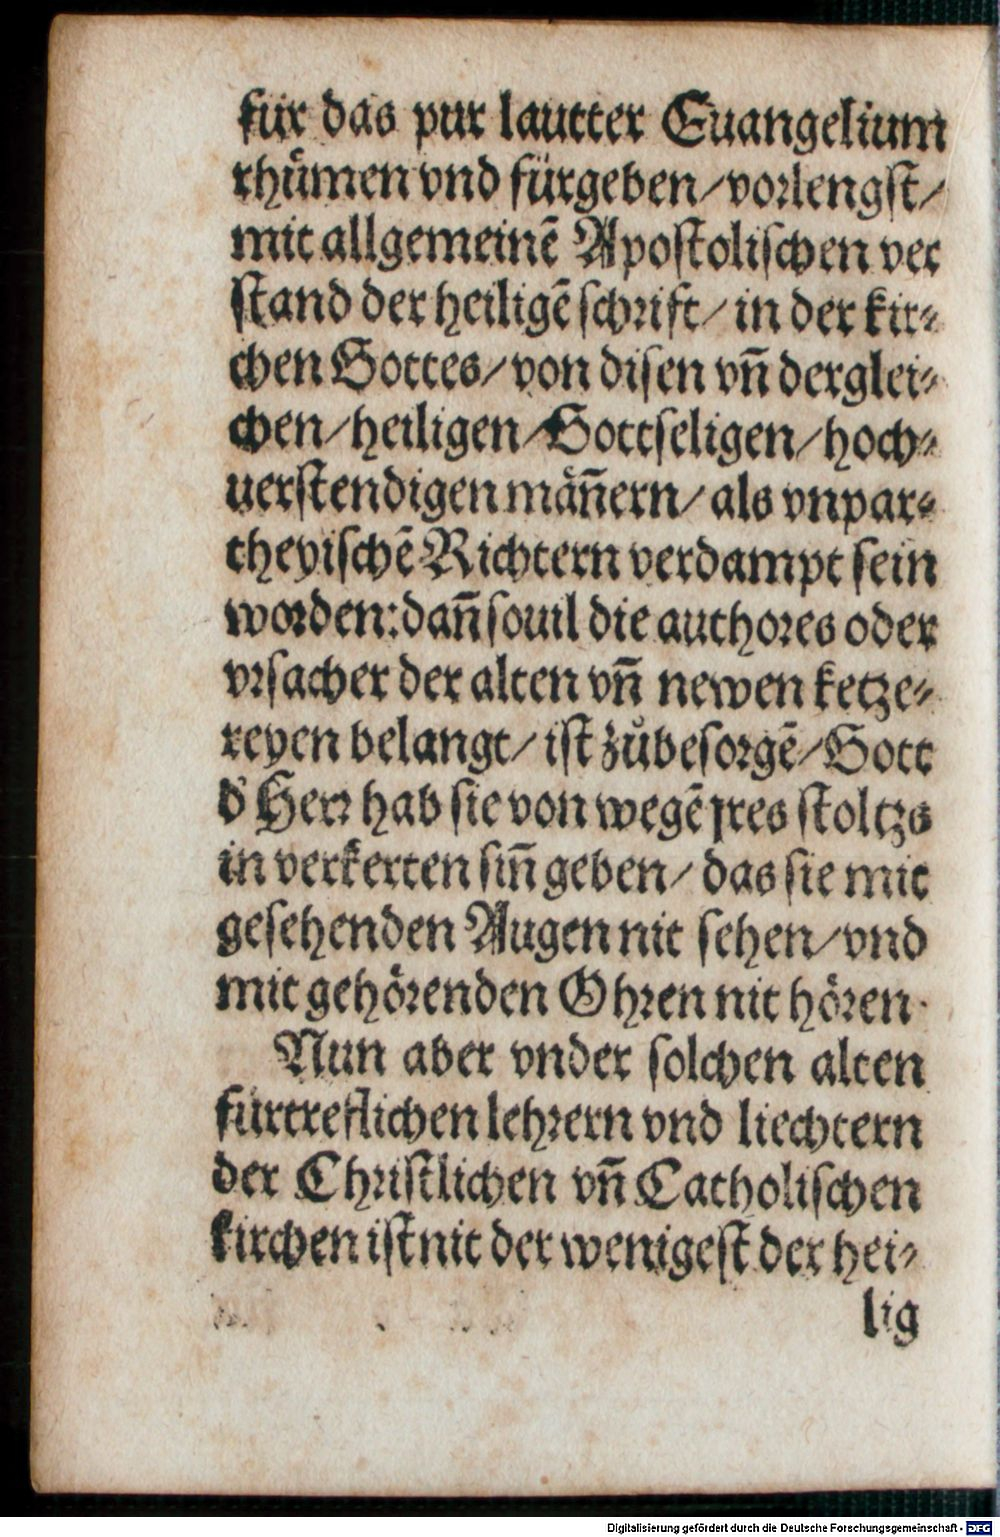 für das pur lautter Euangelium
rhuͤmen vnd fürgeben/vorlengst/
mit allgemeinē Apostolischen ver
stand der heiligē schrift/ in der kir⸗
chen Gottes/von disen vñ derglei⸗
chen/heiligen/Gottseligen/hoch⸗
uerstendigen maͤñern/ als vnpar⸗
theyischē Richtern verdampt sein
worden: dañ souil die authores oder
vrsacher der alten vñ newen ketze⸗
reyen belangt/ ist zůbesorgē/Gott
d' Herr hab sie von wegē jres stoltzs
in verkerten siñ geben/ das sie mit
gesehenden Augen nit sehen/vnd
mit gehoͤrenden Ohren nit hoͤren.
Nun aber vnder solchen alten
fürtreflichen lehrern vnd liechtern
der Christlichen vñ Catholischen
kirchen ist nit der wenigest der hei⸗
lig
Digitalisierung gefördert durch die Deutsche Forschungsgemeinschaft - DFG